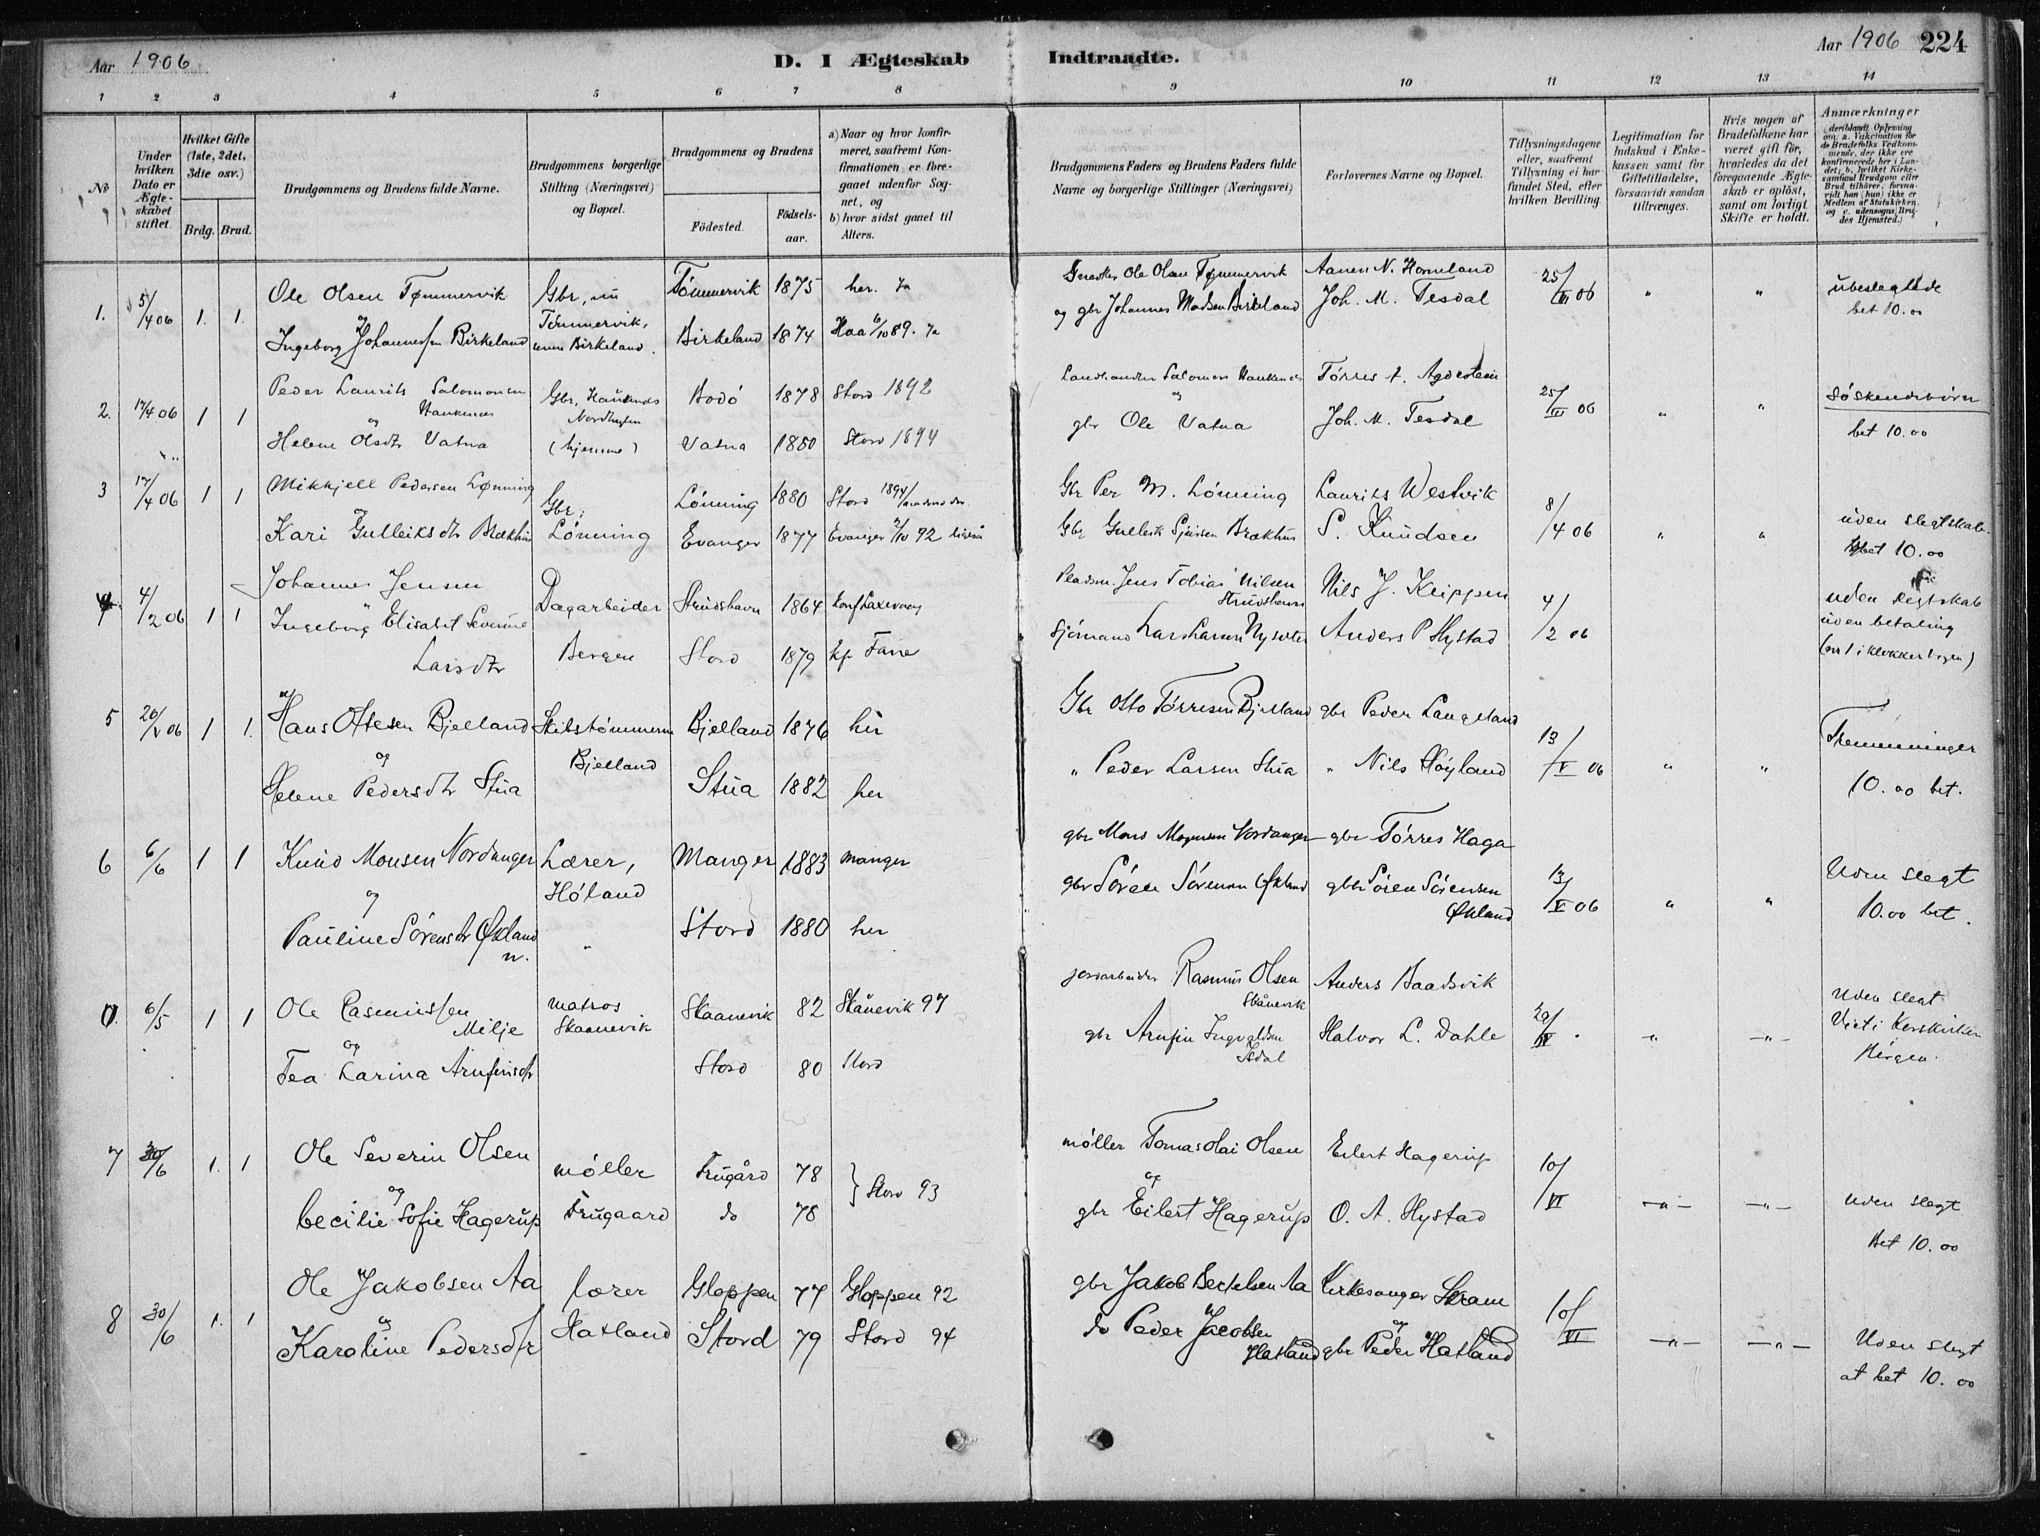 Aar 1906
D. I Ægteskab
Indtraadte.
Aar 1906 224
1 2 3 4 5 6 7 8 9 10 11 12 13 14
No
Under hvilken Dato er Ægteskabet stiftet.
Hvilket Gifte (1ste, 2det, 3die osv.)
Brdg. Brud.
Brudgommens og Brudens fulde Navne.
Brudgommens borgerlige Stilling (Næringsvei) og Bopæl.
Brudgommens og Brudens
Födested.
Födselsaar.
a) Naar og hvor konfirmeret, saafremt Konfirmationen er foregaaet udenfor Sognet, og
b) hvor sidst gaaet til Alters.
Brudgommens Faders og Brudens Faders fulde Navne og borgerlige Stillinger (Næringsvei)
Forlovernes Navne og Bopæl.
Tillysningsdagene eller, saafremt Tillysning ei har fundet Sted, efter hvilken Bevilling.
Legitimation for Indskud i Enkekassen samt for Giftetilladelse, forsaavidt saadan tiltrænges.
Hvis nogen af Brudefolkene har været gift før, hvorledes da det foregaaende Ægteskab er opløst, samt om lovligt Skifte er holdt.
Anmærkninger
1. 5/4 06 1. 1.
Ole Olsen Tømmervik Gbr, nu Tömmervik 1875 her. Ja
og
Ingeborg Johannessen Birkeland Tømmervik, Birkeland. Birkeland 1874 Haa 6/10 89. Ja
Ole Olsen Tømmervik Aanen N. Horneland 25/III 06 " " ubeslegtede
og gbr Johannes Madsen Birkeland Joh. M. Tesdal bet 10.00
2. 17/4 06 1 1
Peder Laurits Salomonsen Gbr, Bodö 1878 Stord 1892
og
Helene Olsdtr Vatna (hjemme) Vatna 1880 Stord 1894
Landhandler Salomon Tørres A. 25/III 06 " " Søskendebørn
og
gbr Ole Vatna Joh. M. Tesdal bet 10.00
3 17/4 06 1 1
Mikkjell Pedersen Lønning Gbr; Lönning 1880 Stord 1894
og
Kari Gulleiksdtr Brækhus Lönning Evanger 1877 Evanger 2/10 92
Gbr Per M. Lönning Laurits Westvik 8/4 06 " " uden slegtskab.
Gbr Gulleik Sjursen Brækhus S. Knudsen bet 10.00
4. 4/2 06 1 1
Johannes Jensen Dagarbeider 1864
og
Ingeborg Elisabet Severine Larsdtr Bergen Stord 1879
Pladsm. Jens Tobias Nilsen Nils J. Keippen 4/2 06 uden slegtskab
Sjömand Lars Larsen Anders P Hystad uden betaling
(nr 1 i klokkerbogen)
5 20/V 06 1 1.
Hans Ottesen Bjelland Skibstömmerm Bjelland 1876 her
og Bjelland
Helene Pedersdtr Stua Stua 1882 her
Gbr Otto Törresen Bjelland gbr Peder Langeland 13/V 06 " " Tremenninger
" Peder Larsen Stua " Nils Höyland 10.00 bet.
6 6/6 1 1
Knud Monsen Nordanger Lærer, Manger 1883 Manger
og Höland
Pauline Sörensdtr Økland " Stord 1880 her
n.
gbr Mons Nordanger gbr Törres Haga 13/V 06 " " Uden slegt
gbr Sören Sörensen Økland gbr Sören Sörensen Økland 10.00 bet.
0. 6/5 1 1
Ole Rasmussen Milje matros Skaanevik Skaanevik 82 Skånevik 97
og
Tea Larina Arnfinsdtr Stord 80 Stord
jordarbeider Rasmus Olsen Skånevik Anders Baadsvik 29/IV " " Uden slegt
gbr Arnfin Ingvaldsen Ådal Halvor L. Dahle Viet i Korskirken Bergen.
7 30/6 1. 1
Ole Severin Olsen möller Frugård 78 } Stord 93
og
Cecilie Sofie Hagerup Frugaard do 78
möller Tomas Olai Olsen Eilert Hagerup 10/VI -"- -"- uden slegt
og
gbr Eilert Hagerup O. A. Hystad Bet 10.00
8 30/6 1. 1
Ole Jakobsen Aa lærer Gloppen 77 Gloppen 92
og
Karoline Pedersdtr Hatland Stord 79 Stord 94
gbr Jakob Bertelsen Aa Kirkesanger Skram 10/VI -"- -"- Uden slegt
og
do Peder Jacobsen Hatland gbr Peder Hatland at bet 10.00